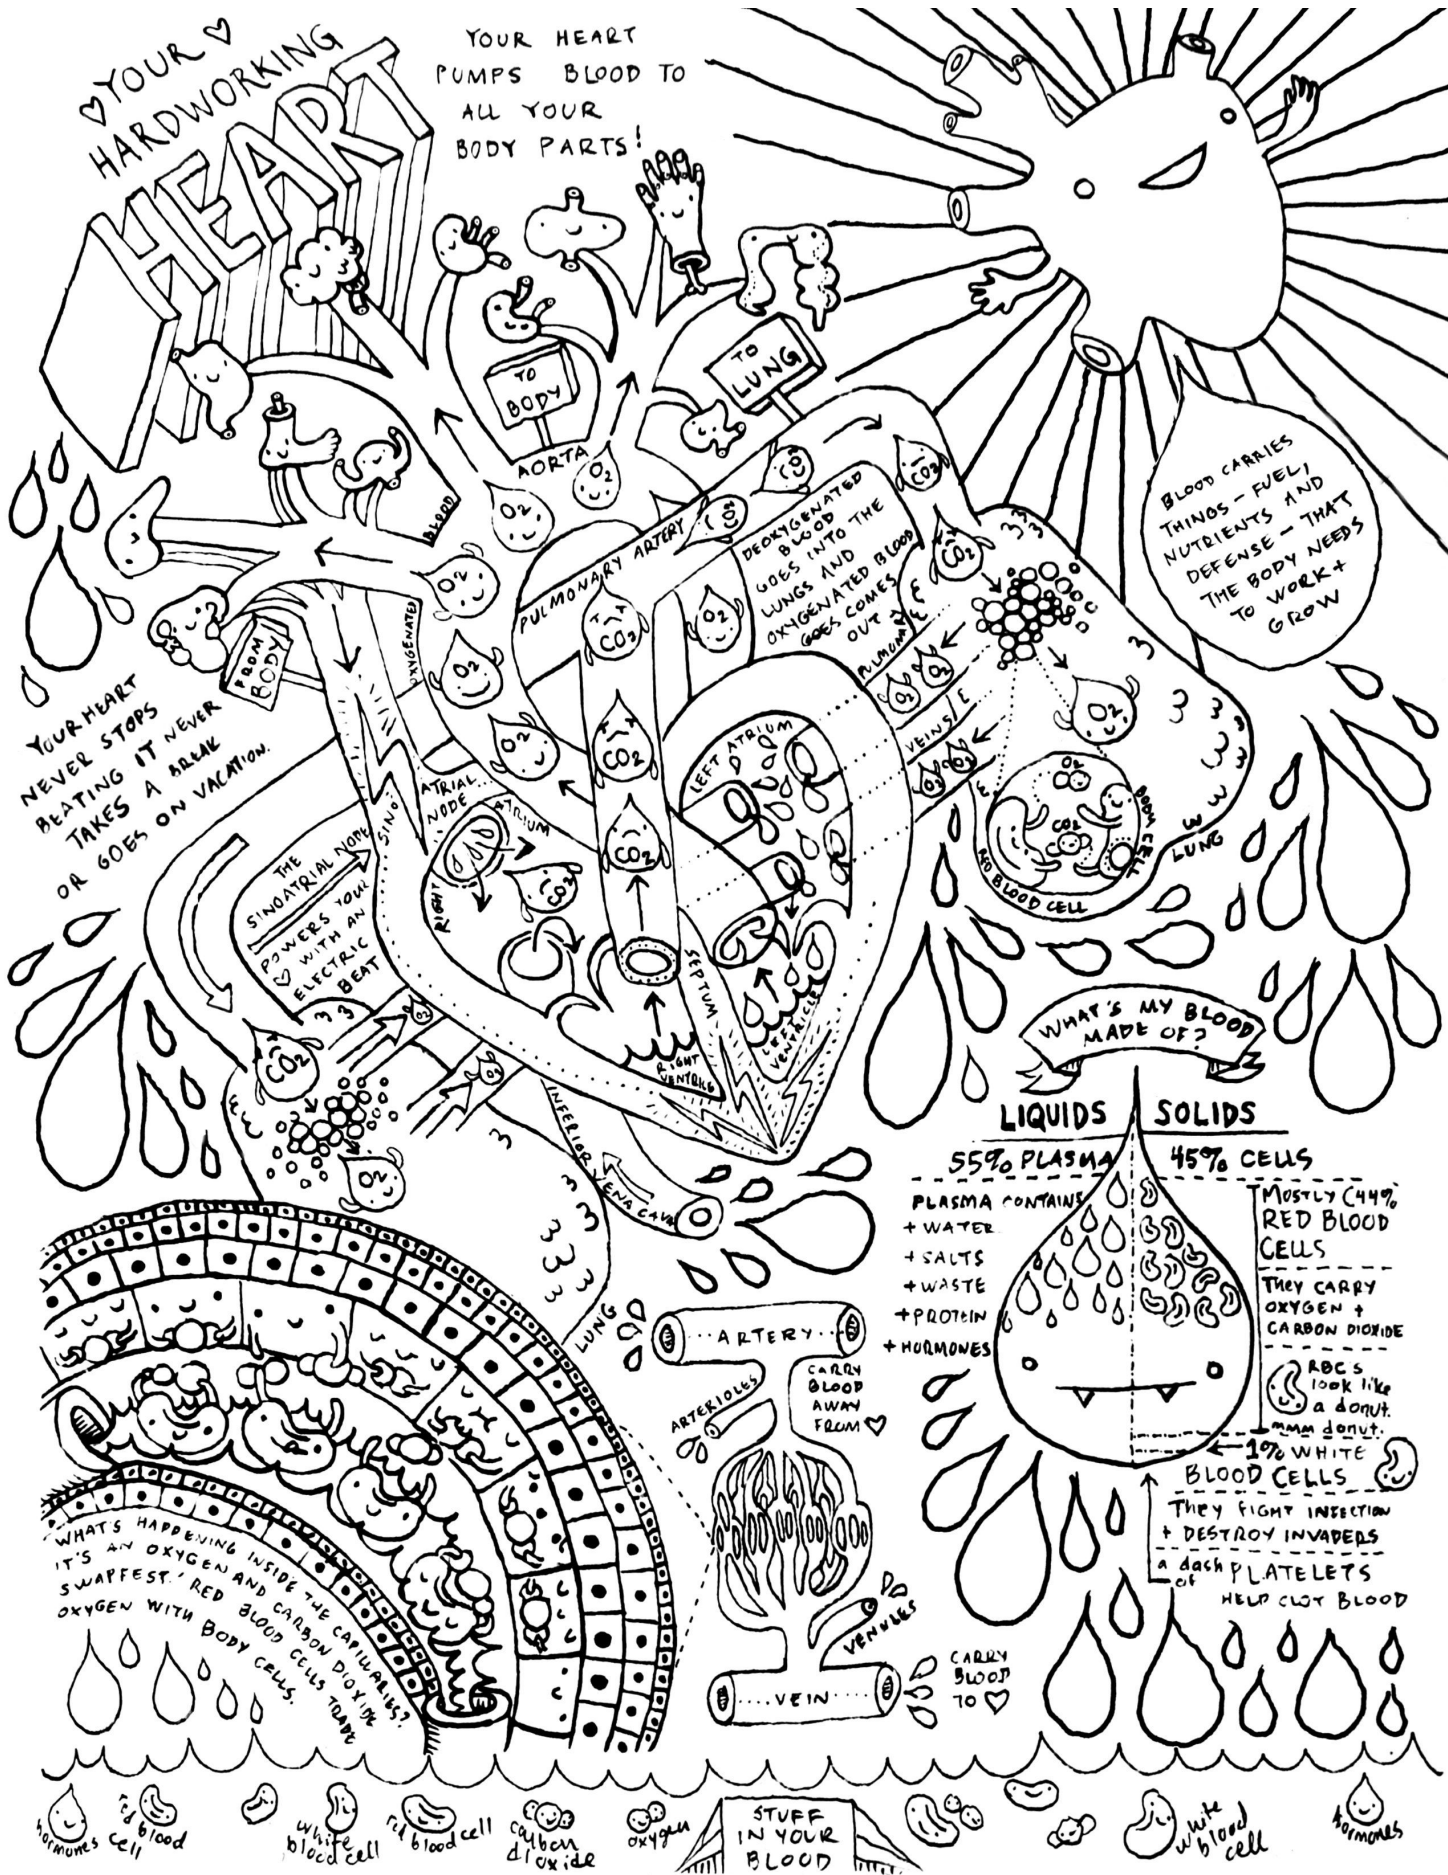 YOUR
HARDWORKING
HEART
YOUR HEART
PUMPS BLOOD TO
ALL YOUR
BODY PARTS!
TO
BODY
TO
LUNG
AORTA
O2
O2
BLOOD
OXYGENATED
O2
O2
O2
PULMONARY ARTERY
CO2
CO2
CO2
CO2
CO2
CO2
CO2
O2
DEOXYGENATED
BLOOD
GOES INTO THE
LUNGS AND
OXYGENATED BLOOD
GOES COMES
OUT
BLOOD CARRIES
THINGS - FUEL,
NUTRIENTS AND
DEFENSE - THAT
THE BODY NEEDS
TO WORK +
GROW
FROM
BODY
YOUR HEART
NEVER STOPS
BEATING. IT NEVER
TAKES A BREAK
OR GOES ON VACATION.
PULMONARY
VEINS
O2
O2
O2
O2
O2
O2
CO2
BODY CELL
RED BLOOD CELL
LUNG
LEFT ATRIUM
SINO
ATRIAL
NODE
RIGHT
ATRIUM
CO2
THE
SINOATRIAL NODE
POWERS YOUR
♡ WITH AN
ELECTRIC
BEAT
SEPTUM
RIGHT
VENTRICLE
LEFT
VENTRICLE
CO2
O2
O2
O2
INFERIOR VENA CAVA
LUNG
WHAT'S MY BLOOD
MADE OF?
LIQUIDS
SOLIDS
55% PLASMA
45% CELLS
PLASMA CONTAINS
+ WATER
+ SALTS
+ WASTE
+ PROTEIN
+ HORMONES
MOSTLY (44%
RED BLOOD
CELLS
THEY CARRY
OXYGEN +
CARBON DIOXIDE
RBC'S
look like
a donut.
mmm donut.
1% WHITE
BLOOD CELLS
THEY FIGHT INFECTION
+ DESTROY INVADERS
a dash
of
PLATELETS
HELP CLOT BLOOD
ARTERY
CARRY
BLOOD
AWAY
FROM ♡
ARTERIOLES
VENULES
VEIN
CARRY
BLOOD
TO ♡
WHAT'S HAPPENING INSIDE THE CAPILLARIES?
IT'S AN OXYGEN AND CARBON DIOXIDE
SWAPFEST! RED BLOOD CELLS TRADE
OXYGEN WITH BODY CELLS.
hormones
red blood
cell
white
blood cell
red blood cell
carbon
dioxide
oxygen
STUFF
IN YOUR
BLOOD
white
blood
cell
hormones